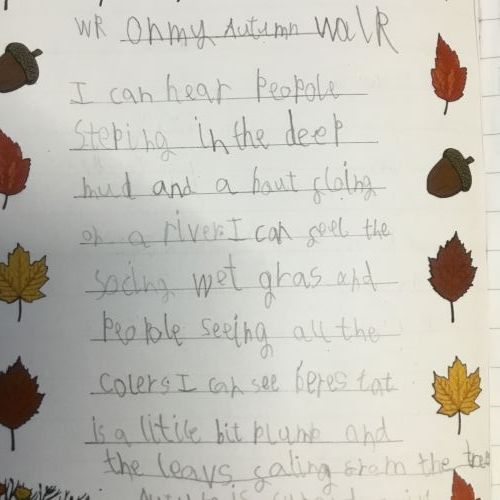 WR On my Autumn Walk
I can hear Peopole
Steping in the deep
mud and a baut floing
on a river I can feel the
socing wet gras and
Peopole seeing all the
colers I can see beres tat
is a litile bit plump and
the leavs faling from the tree